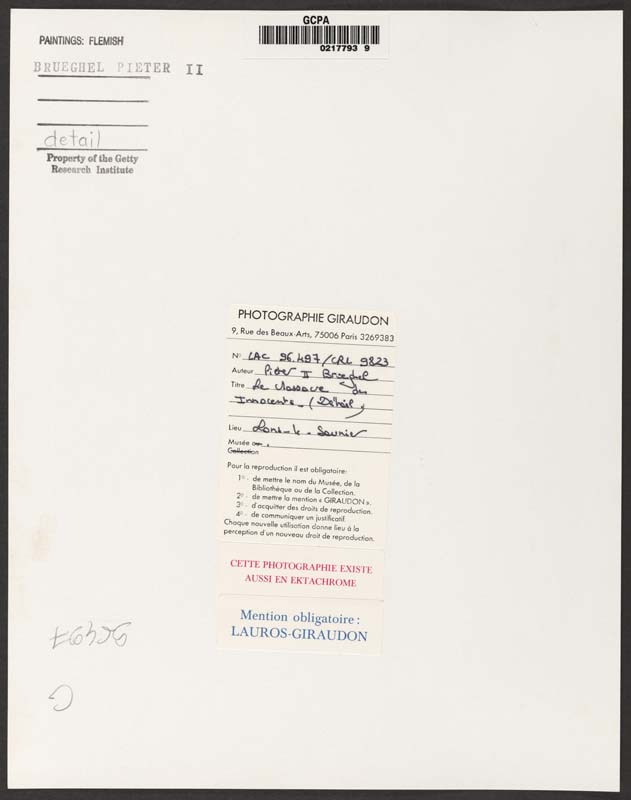 GCPA
0217793 9
PAINTINGS: FLEMISH
BRUEGHEL PIETER II
detail
Property of the Getty
Research Institute
PHOTOGRAPHIE GIRAUDON
9, Rue des Beaux-Arts, 75006 Paris 3269383
No LAC 96.497/CRL 9823
Auteur Pieter II Brueghel
Titre Le Massacre des
Innocents - (Détail)
Lieu Lons-le-Saunier
Musée ou
Collection
Pour la reproduction il est obligatoire:
1o - de mettre le nom du Musée, de la
Bibliothèque ou de la Collection.
2o - de mettre la mention « GIRAUDON ».
3o - d'acquitter des droits de reproduction.
4o - de communiquer un justificatif.
Chaque nouvelle utilisation donne lieu à la
perception d'un nouveau droit de reproduction.
CETTE PHOTOGRAPHIE EXISTE
AUSSI EN EKTACHROME
Mention obligatoire :
LAUROS-GIRAUDON
96497